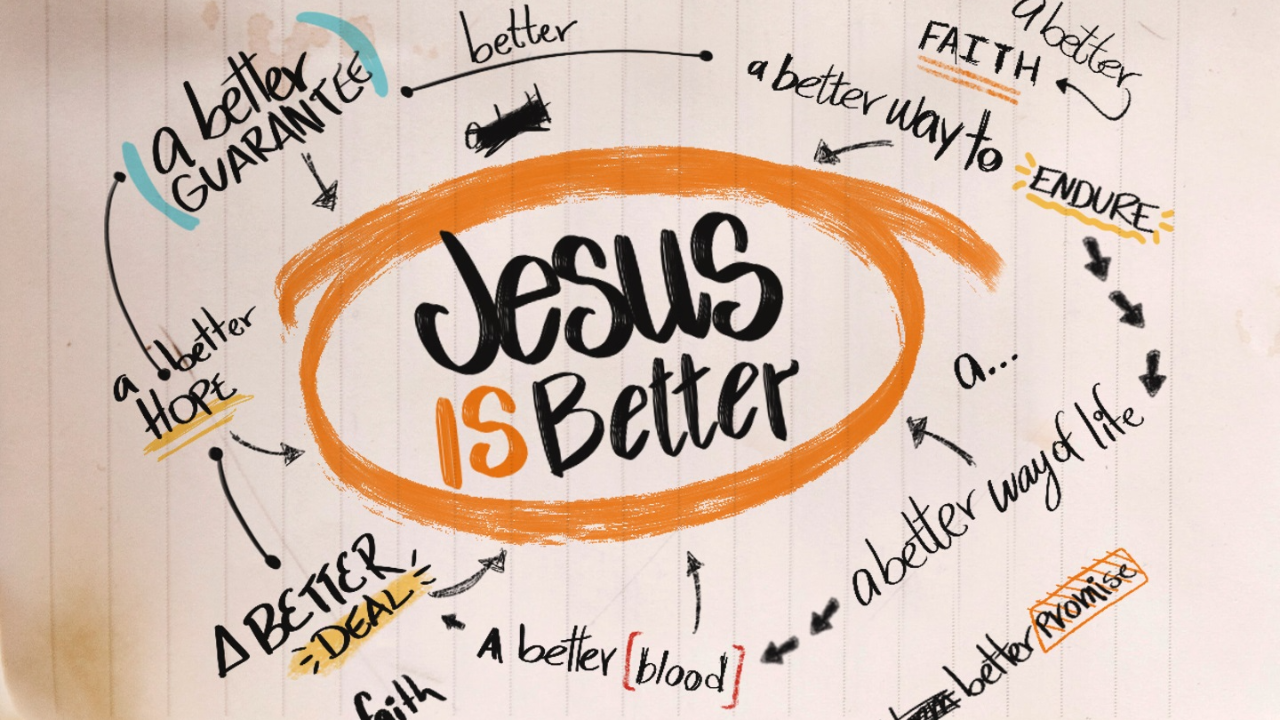 a better
GUARANTEE
better
a better
FAITH
a better way to
ENDURE
Jesus
IS Better
a better
HOPE
a...
a better way of life
A BETTER
DEAL
A better [blood]
better promise
faith